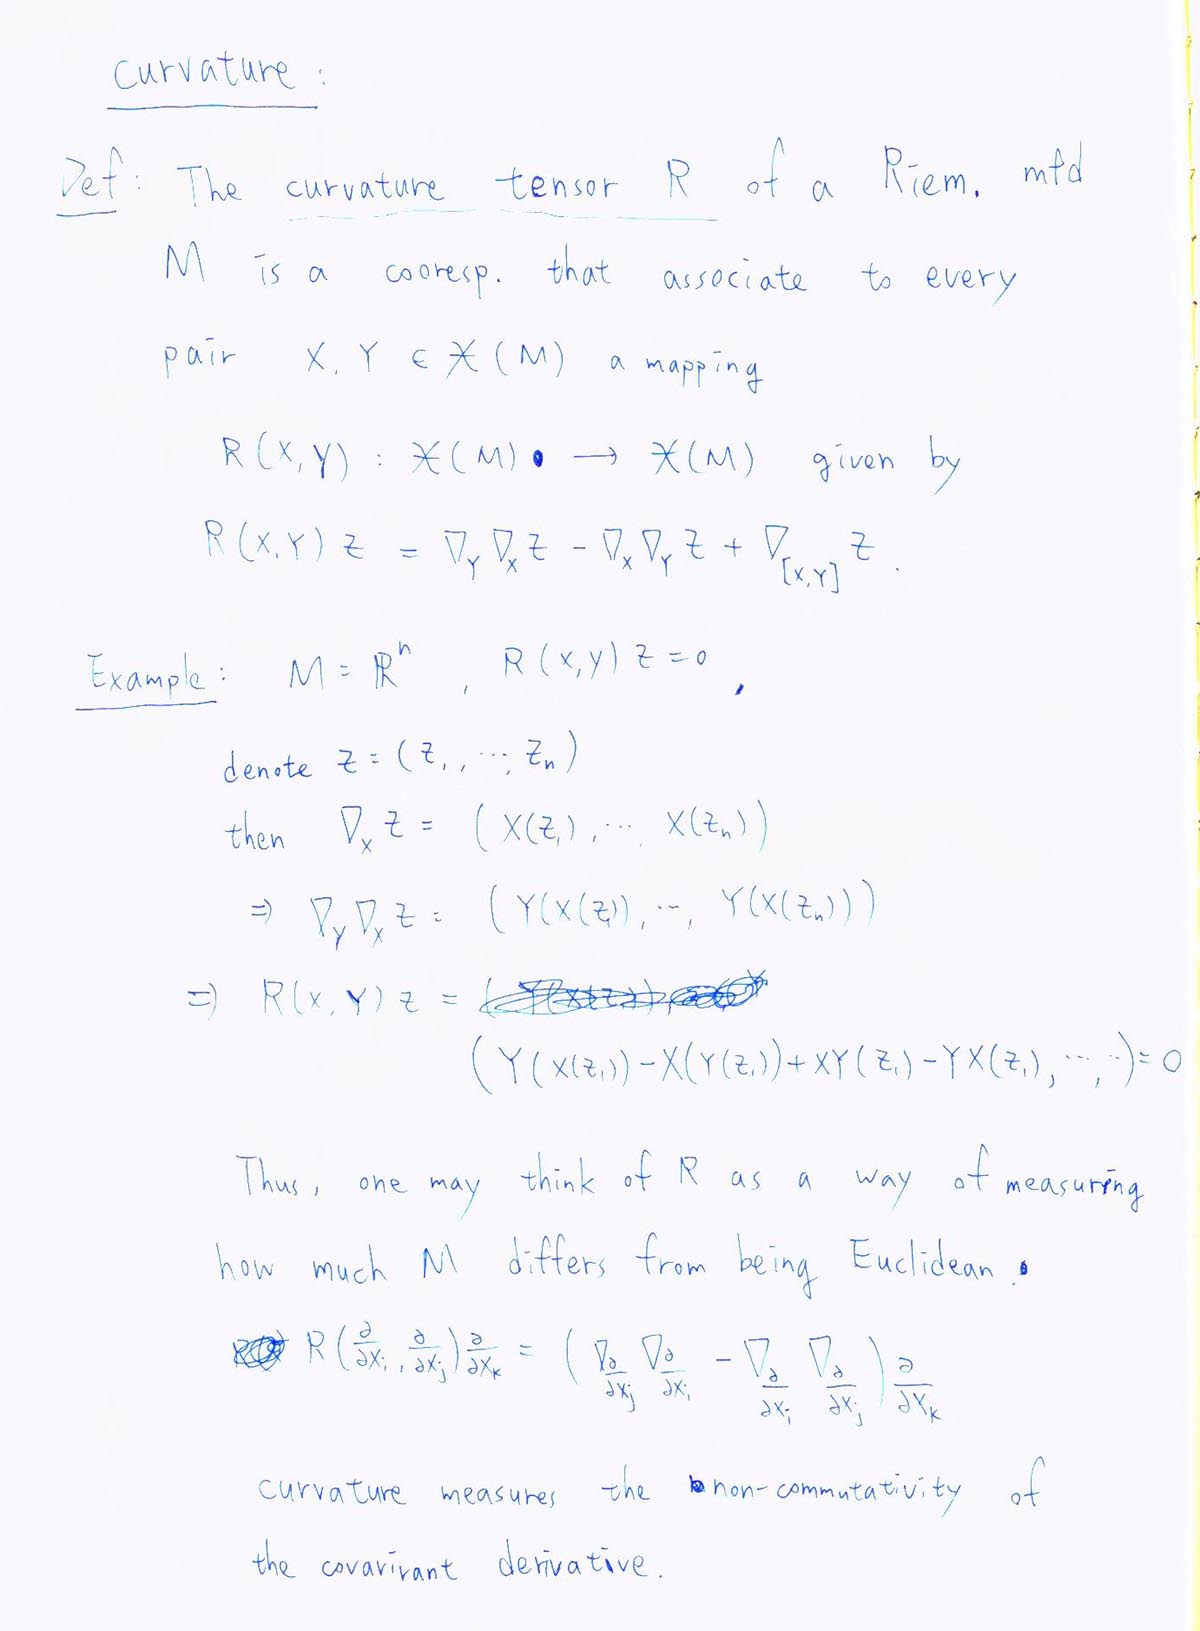 curvature :
Def : The curvature tensor R of a Riem. mfd
M is a cooresp. that associate to every
pair X, Y ∈ 𝔛(M) a mapping
R(X,Y) : 𝔛(M) → 𝔛(M) given by
R(X,Y) Z = ∇_Y ∇_X Z - ∇_X ∇_Y Z + ∇_[X,Y] Z .
Example : M = ℝⁿ , R(X,Y) Z = 0 ,
denote Z = (Z₁, ⋯, Zₙ)
then ∇_X Z = (X(Z₁), ⋯, X(Zₙ))
⇒ ∇_Y ∇_X Z = (Y(X(Z₁)), ⋯, Y(X(Zₙ)))
⇒ R(X,Y) Z =
(Y(X(Z₁)) - X(Y(Z₁)) + XY(Z₁) - YX(Z₁), ⋯, ⋅⋅) = 0
Thus, one may think of R as a way of measuring
how much M differs from being Euclidean .
R(∂/∂x_i, ∂/∂x_j) ∂/∂x_k = (∇_∂/∂x_j ∇_∂/∂x_i - ∇_∂/∂x_i ∇_∂/∂x_j) ∂/∂x_k
curvature measures the non-commutativity of
the covarirant derivative.